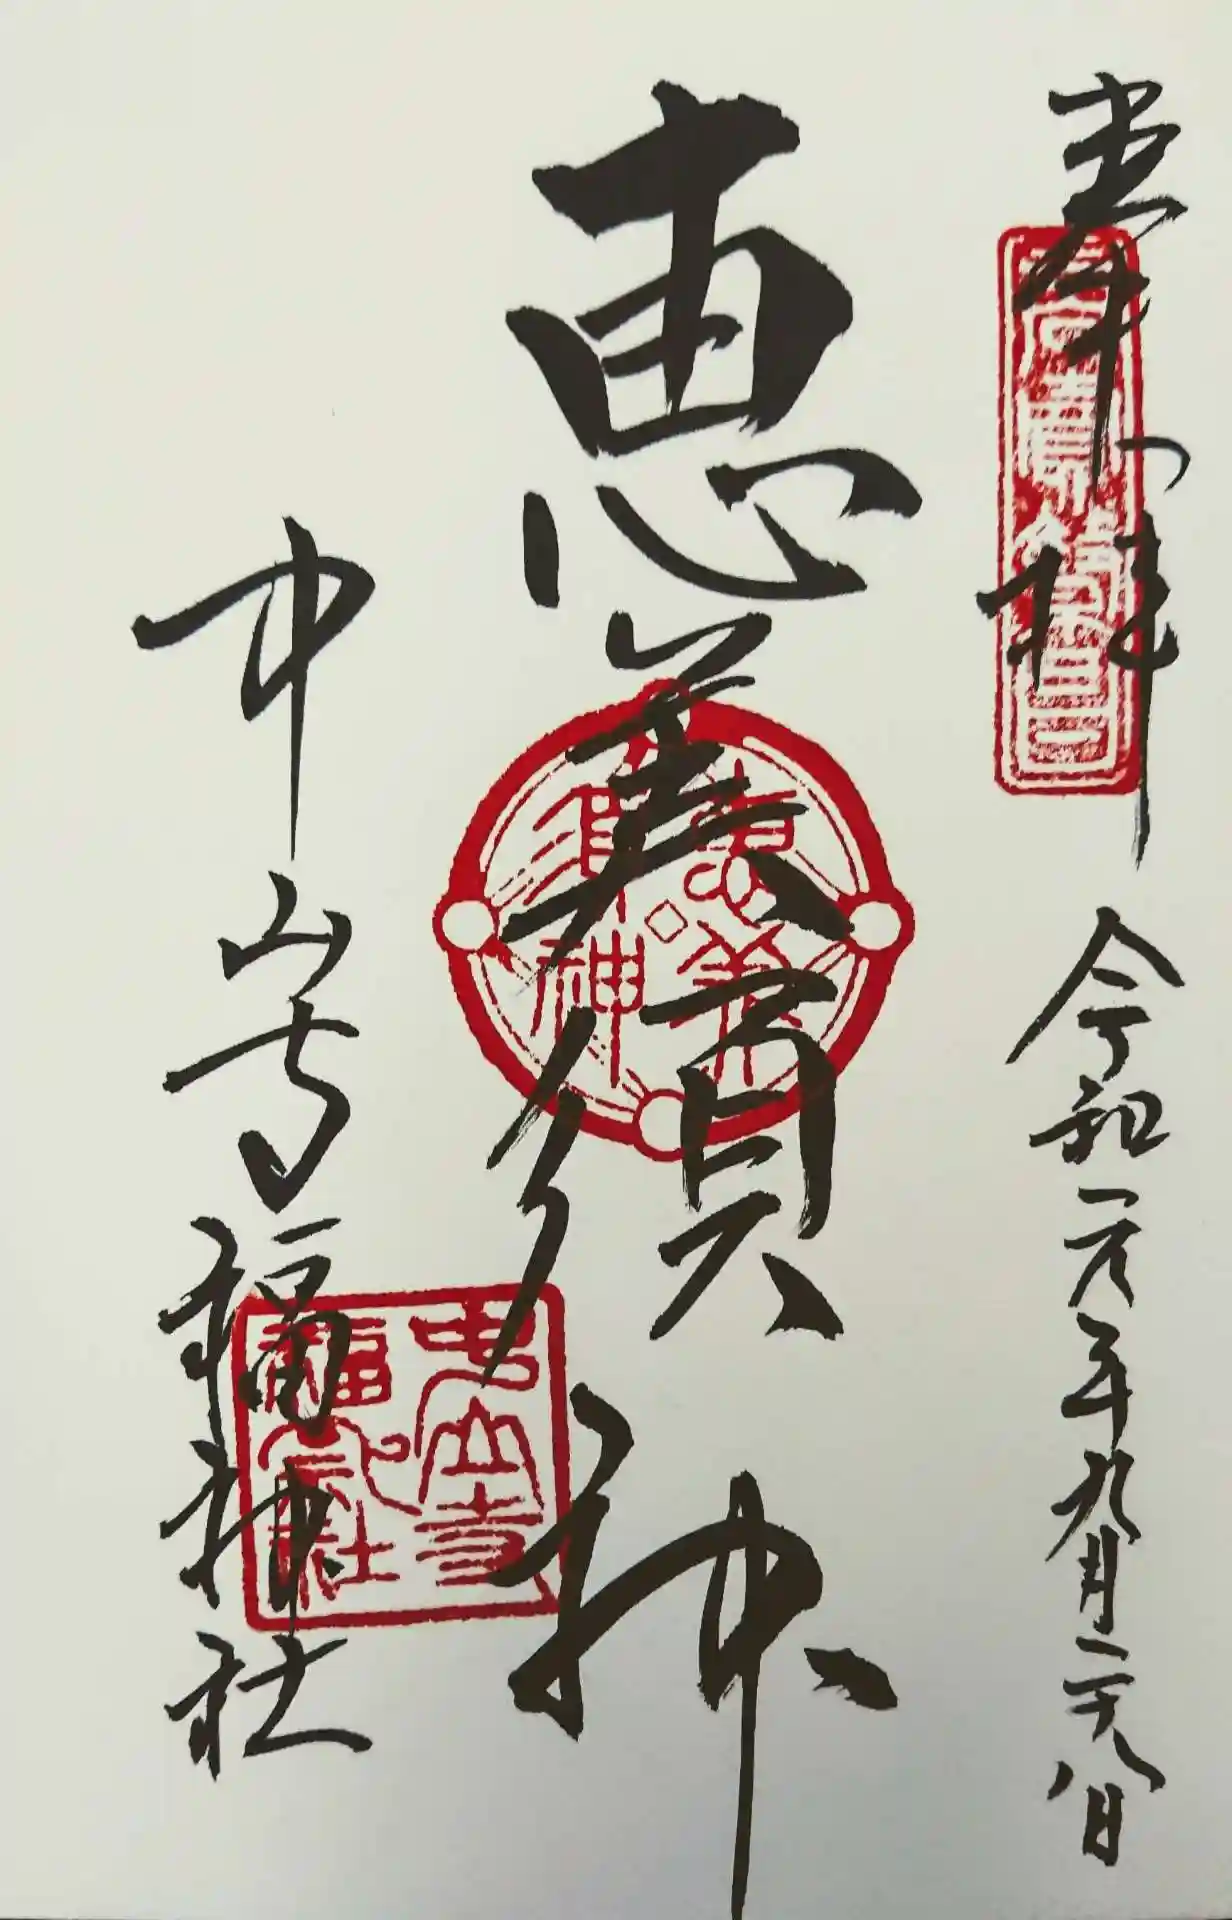 奉拝 令和元年九月二十八日
恵美須神
中山寺福神社
恵美
須神
中山寺
福神社